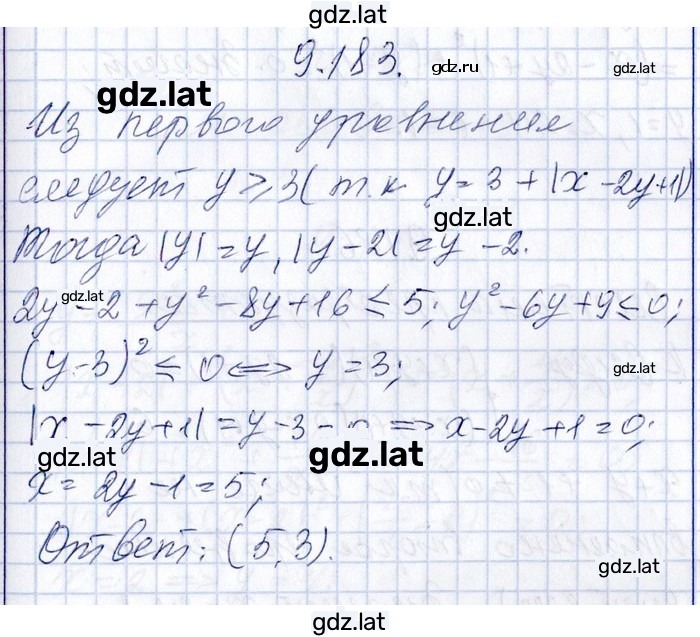 gdz.lat
9.183.
gdz.ru
gdz.lat
gdz.lat
Из первого уравнения
следует y ⩾ 3 ( т.к. y = 3 + |x - 2y + 1|)
gdz.lat
Тогда |y| = y, |y - 2| = y - 2.
gdz.lat
2y - 2 + y² - 8y + 16 ≤ 5; y² - 6y + 9 ≤ 0;
(y - 3)² ≤ 0 ⟺ y = 3;
gdz.lat
|x - 2y + 1| = y - 3 = ⟹ x - 2y + 1 = 0;
gdz.lat
gdz.lat
x = 2y - 1 = 5;
Ответ: (5,3).
gdz.lat
gdz.lat